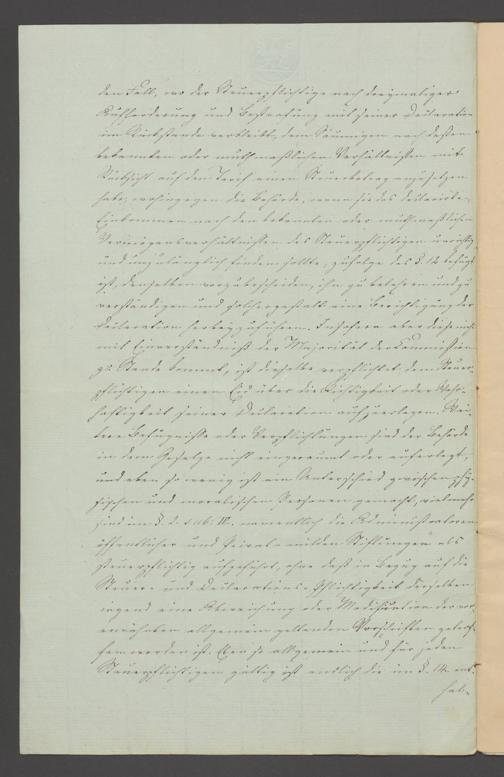 den Fall, wo der Steuerpflichtige nach dreymaliger
Aufforderung und Bestrafung mit seiner Declaration
im Rückstande verbleibt, dem Säumigen nach dessen
bekannten oder muthmaßlichen Verhältnissen mit
Rücksicht auf den Tarif einen Steuerbetrag anzusetzen
habe, wohingegen die Behörde, wenn sie das declarirte
Einkommen nach den bekannten oder muthmaßlichen
Vermögensverhältnissen des Steuerpflichtigen unrichtig
und unzulänglich finden sollte, zufolge des §. 12 befugt
ist, denselben vorzubescheiden, ihn zu belehren und zu
verständigen und solchergestalt eine Berichtigung der
Declaration herbeyzuführen. Insofern aber diese nicht
mit Einverständniß der Majorität der Commission
zu Stande kommt, ist dieselbe verpflichtet dem Steuer-
pflichtigen einen Eid über die Richtigkeit oder Wahr-
haftigkeit seiner Declaration aufzuerlegen. Wei-
tere Befugnisse oder Verpflichtungen sind der Behörde
in dem Gesetze nicht eingeräumt oder auferlegt,
und eben so wenig ist ein Unterschied zwischen phy-
sischen und moralischen Personen gemacht, vielmehr
sind im §. 2. sub. IV. namentlich die Administratoren
öffentlicher und Privat- milden Stiftungen als
steuerpflichtig aufgeführt, ohne daß in Bezug auf die
Steuer- und Declarations-Pflichtigkeit derselben
irgend eine Abweichung oder Modification der vor-
erwähnten allgemein geltenden Vorschriften getrof-
fen worden ist. Eben so allgemein und für jeden
Steuerpflichtigen gültig ist endlich die im §. 14 ent-
hal-